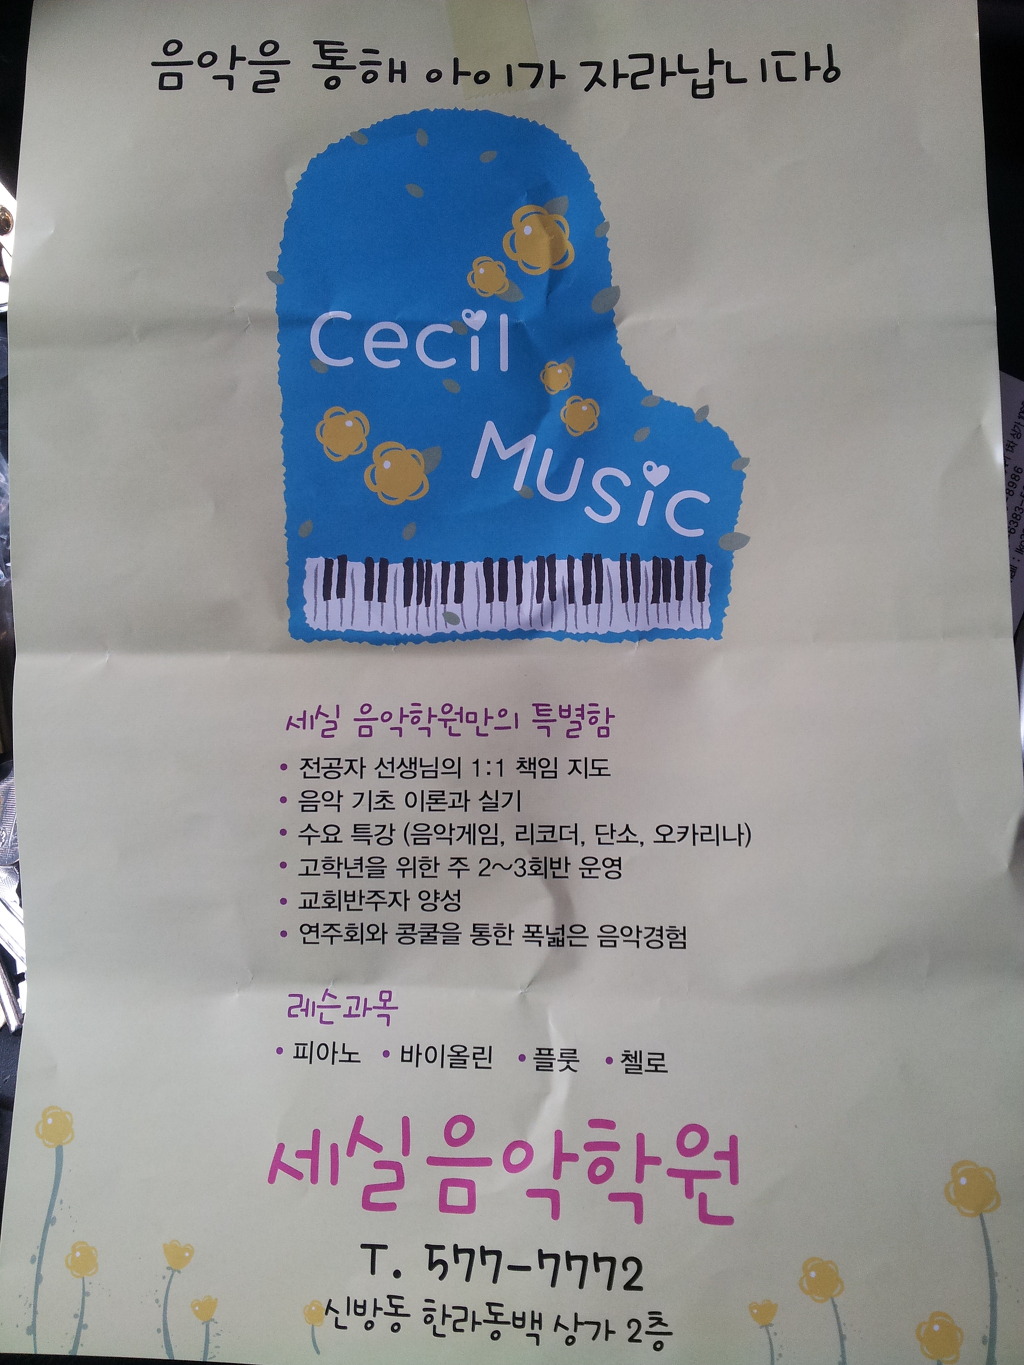 음악을 통해 아이가 자라납니다!
Cecil
Music
세실 음악학원만의 특별함
• 전공자 선생님의 1:1 책임 지도
• 음악 기초 이론과 실기
• 수요 특강 (음악게임, 리코더, 단소, 오카리나)
• 고학년을 위한 주 2~3회반 운영
• 교회반주자 양성
• 연주회와 콩쿨을 통한 폭넓은 음악경험
레슨과목
• 피아노 • 바이올린 • 플룻 • 첼로
세실음악학원
T. 577-7772
신방동 한라동백 상가 2층